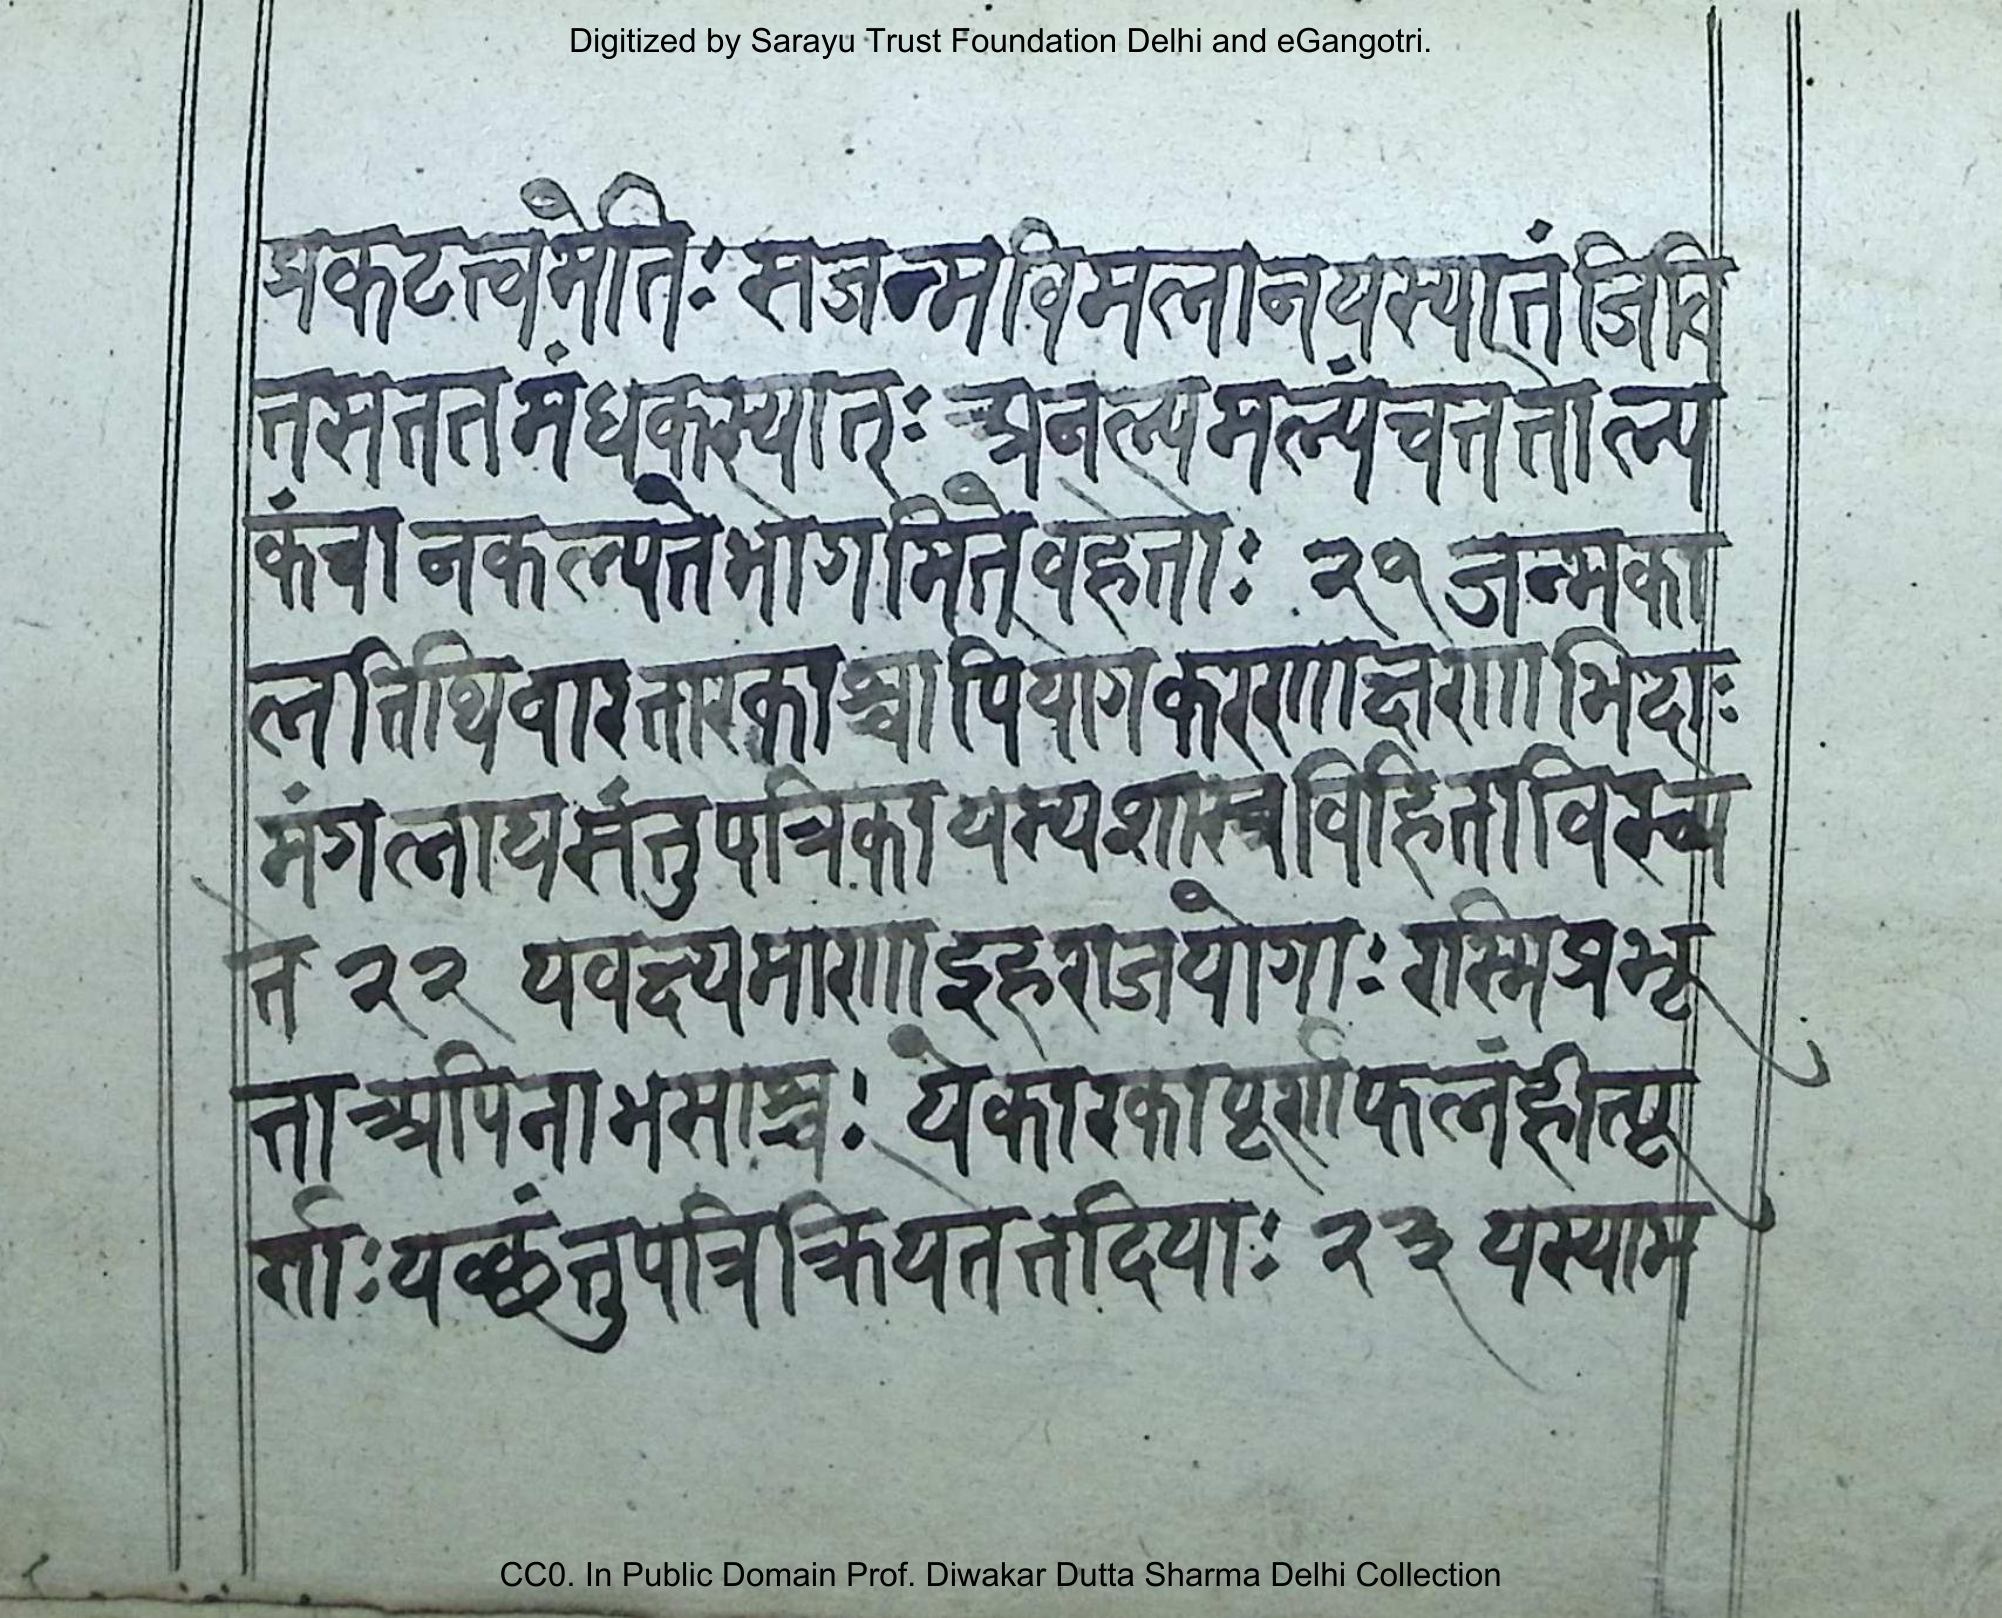 Digitized by Sarayu Trust Foundation Delhi and eGangotri.
प्रकटत्त्वमेति: सजन्मविमलानयस्यातं जिवि
तसततमंधकस्यात्: प्रनल्पमल्पंचतत्तोल्प
कंवा नकल्पते भोगमितेवहेतो: २१ जन्मका
लतिथिवारतारकाश्चापियोगकररणाक्षणाभिदा:
मंगलाद्यसंतुपत्रिकायस्यशास्त्रविहिताविरच्य
ते २२ यवक्ष्यमाणा इहराजयोगा: रास्मिप्रभृ
ताअपिनाभसाश्च: येकारकापूर्णाफलंहीतपू
र्णा: यछंतुपत्रिक्रियतेतदिया: २३ यस्याम
CC0. In Public Domain Prof. Diwakar Dutta Sharma Delhi Collection